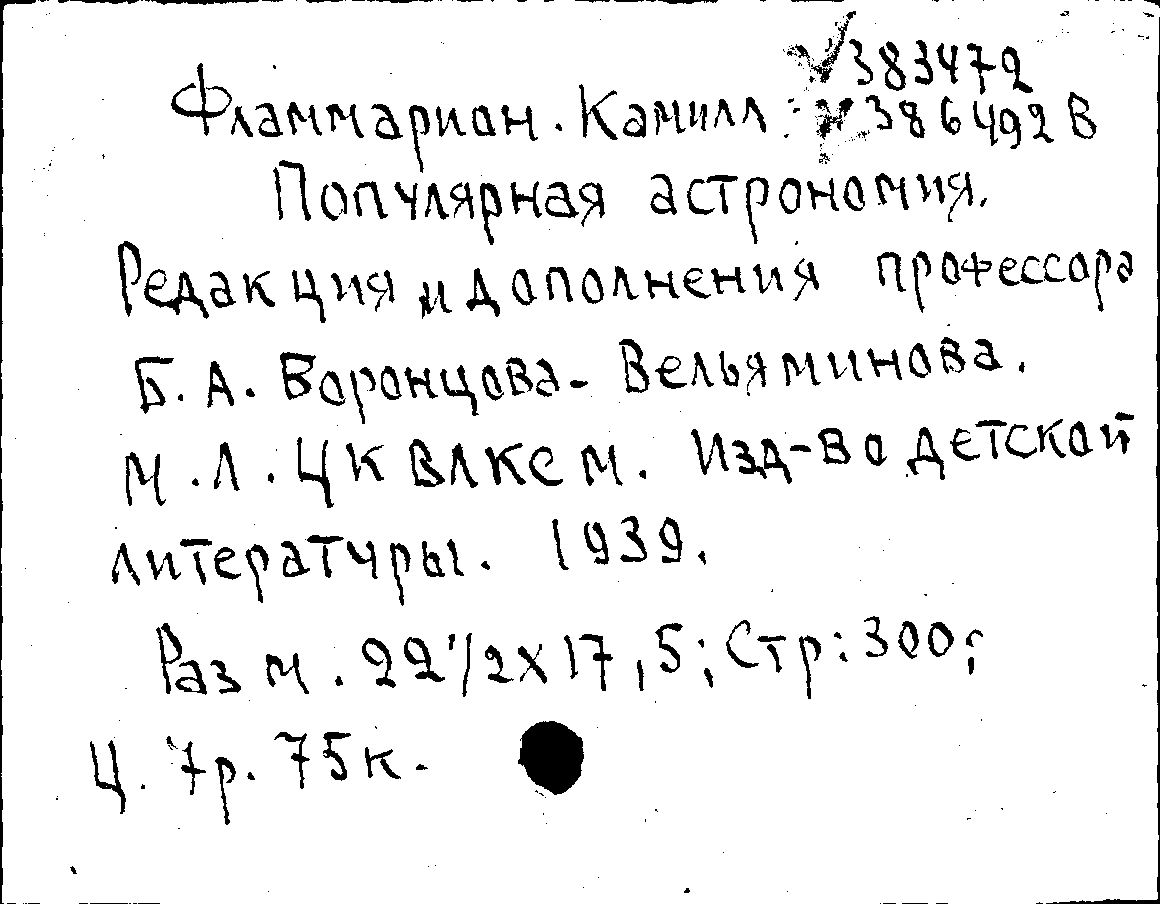 √383472
Фламмарион. Камилл: √386492 В
Популярная астрономия.
Редакция и дополнения профессора
Б. А. Воронцова-Вельяминова.
М. Л. ЦК ВЛКСМ. Изд-во детской
литературы. 1939.
Разм. 22 1/2 x 17,5; Стр: 300;
Ц. 7р. 75к.